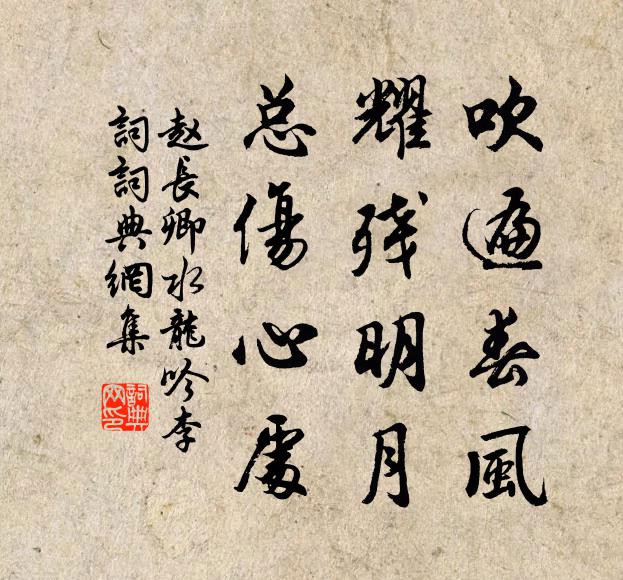 吹遍春風
耀残明月
总傷心處
赵長卿水龍吟李
詞詞典網集
詞典網印